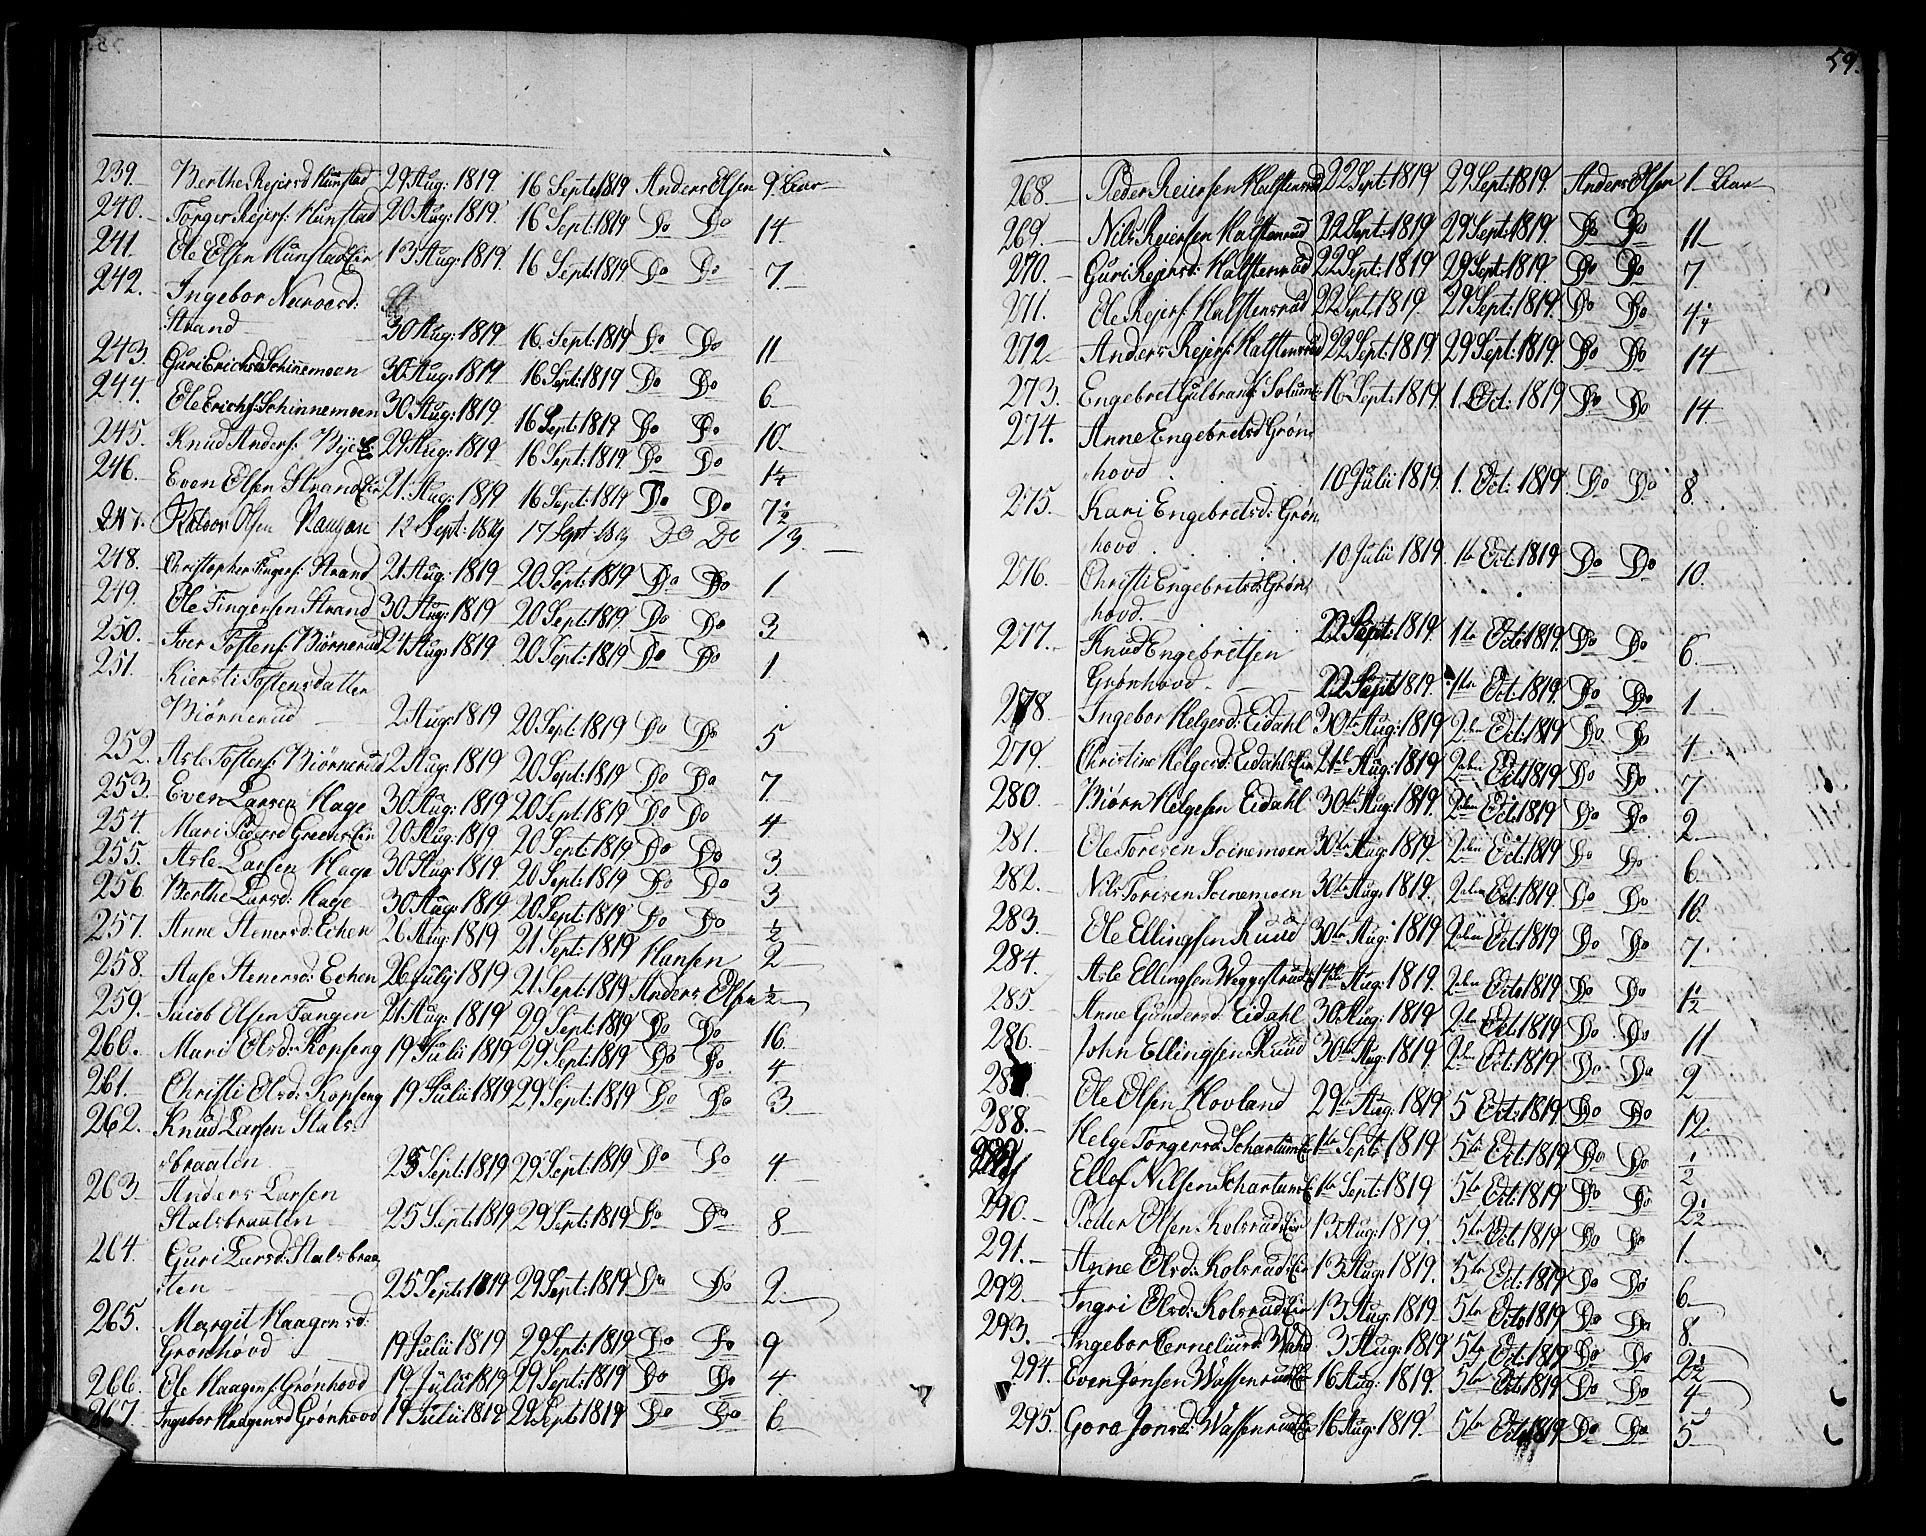 59.
239. Berthe Rejersd Hunstad 29 Aug: 1819. 16 Septe 1819 Anders Olsen 9. Aar
240. Torger Rejers: Hunstad 20 Aug: 1819. 16 Sept: 1819 Do Do 14.
241. Ole Olsen Hunstad Eir 13 Aug: 1819. 16 Sept: 1819 Do Do 7
242. Ingebor Narvesd:
Strand 30 Aug: 1819. 16. Sept: 1819 Do Do 11
243. Guri Erichsd Schinemoen 30 Aug: 1819 16 Sept: 1819 Do Do 6
244. Ole Erichs: Schinnemoen 30 Aug: 1819. 16 Sept: 1819 Do Do 10.
245. Knud Anders: Bye 29 Aug: 1819 16 Sept: 1819. Do Do 14
246. Even Olsen Strand Eir 21 Aug: 1819 16 Sept: 1819 Do Do 7½
247. Olsen 12 Sept: 1819 17 Sept 1819 Do Do 13.
248. Christopher Fingers: Strand 21 Aug: 1819 20 Sept: 1819 Do Do 1
249. Ole Fingersen Strand 30 Aug: 1819 20 Sept: 1819 Do Do 3
250. Iver Tostens: Biørnerud 24 Aug: 1819 20 Sept: 1819 Do Do 1
251. Kiersti Tostensdatter
Biørnerud 2 Aug: 1819 20 Sept: 1819 Do Do 5
252. Asle Tostens: Biørnerud 2 Aug: 1819 20 Sept: 1819 Do Do 7.
253. Even Larsen Hage 30 Aug: 1819 20 Sept: 1819 Do Do 4
254. Mari Green Eir 20 Aug: 1819. 20 Sept: 1819. Do Do 3
255. Asle Larsen Hage 30 Aug: 1819. 20 Sept: 1819 Do Do 3
256. Berthe Larsd: Hage 30 Aug: 1819 20 Sept: 1819 Do Do ½
257. Anne Stenersd: Echen 26 Aug: 1819 21 Sept: 1819 Hansen 2
258. Aase Stenersd: Echen 26 July 1819 21 Sept: 1819 Anders Olsen ½
259. Jacob Olsen Tangen 21 Aug: 1819 29 Sept: 1819 Do Do 16
260. Mari Olsd: Kopseng 19 Julii 1819 29 Sept: 1819 Do Do. 4
261. Christi Olsd: Kopseng 19 Julii 1819 29 Sept: 1819 Do Do 3
262. Knud Larsen Stals-
braaten 25 Sept: 1819 29 Sept: 1819 Do Do 4.
263. Anders Larsen
Stalsbraaten 25 Sept: 1819 29 Sept: 1819 Do Do 8
264. Guri Larsd: Stalsbraa
ten 25 Sept: 1819 29 Sept: 1819 Do Do 2.
265. Margit Haagensd:
Grønhovd 19 Julii 1819 29 Sept: 1819 Do Do 9
266. Ole Haagens: Grønhovd 19 Julii 1819 29 Sept: 1819 Do Do 4.
267. Ingebor Haagensd Grønhovd 19 Julii 1819 29 Sept 1819 Do Do 6
268. Peder Reiersen Halstensrud 22 Sept: 1819 29 Sept: 1819. Anders Olsen 1 Aar
269. Nils Reiersen Halstensrud 22 Sept: 1819 29 Sept: 1819. Do Do 11
270. Guri Rejersd: Halstensrud 22 Sept: 1819 29 Sept: 1819. Do Do 7
271. Ole Rejers: Halstensrud 22 Sept: 1819. 29 Sept: 1819. Do Do 4¼
272 Anders Rejers: Halstensrud 22 Sept: 1819. 29 Sept: 1819. Do Do 14
273. Engebret Gulbrans: Solum 16 Sept: 1819. 1. Oct: 1819 Do Do 14.
274. Anne Engebretsd Grøn
hovd 10 Julii 1819. 1. Oct: 1819. Do Do 8.
275. Kari Engebretsd: Grøn
hovd 10 Julii 1819. 1te Oct: 1819 Do Do 10.
276. Christi Engebretsd: Grøn
hovd. 22 Sept: 1819. 1te Oct: 1819. Do Do 6.
277. Knud Engebretsen
Grønhovd 22 Sept 1819. 1te Oct: 1819. Do Do 1
278. Ingebor Helgesd: Eidahl 30te Aug: 1819 2den Oct: 1819 Do Do 4.
279. Christine Helgesd: Eidahl Eir 21de Aug: 1819 2den Oct: 1819 Do Do 7
280. Biørn Helgesen Eidahl 30te Aug: 1819. 2den Oct: 1819 Do Do 2.
281. Ole Toresen Scinemoen 30te Aug: 1819. 2den Oct: 1819 Do Do 6
282. Nils Toresen Scinemoen 30te Aug: 1819. 2den Oct: 1819 Do Do 10.
283. Ole Ellingsen Ruud 30te Aug: 1819 2den Oct: 1819 Do Do 7
284. Asle Ellingsen Weggestrud 14de Aug: 1819. 2den Oct: 1819 Do Do 1½
285. Anne Gundersd: Eidahl 30 Aug: 1819 2den Oct: 1819 Do Do 11
286. John Ellingsen Ruud 30te Aug: 1819 2den Oct: 1819 Do Do 2
Ole Olsen Hovland 29te Aug: 1819 5 Oct: 1819 Do Do 12.
288. Helge Torgersd: Schartum 1te Sept: 1819 5te Oct: 1819 Do Do ½
Ellef Nilsen Schartum 1te Sept: 1819 5te Oct: 1819 Do Do 2½
290. Peder Olsen Kolsrud Eir 13 Aug: 1819. 5te Oct: 1819 Do Do 1.
291. Anne Olsd: Kolsrud Eir 13 Aug: 1819. 5te Oct: 1819 Do Do 6.
292. Ingri Olsd: Kolsrud Eir 13 Aug: 1819. 5te Octo 1819 Do Do 8
293. Ingebor Corneliusd: 3 Aug: 1819 5te Oct: 1819 Do Do 2½
294. Even Jonsen Wassenrud 16 Aug: 1819. 5te Oct: 1819 Do Do 4
295. Gora Jonsd: Wassenrud 16 Aug: 1819. 5te Oct: 1819 Do Do 5